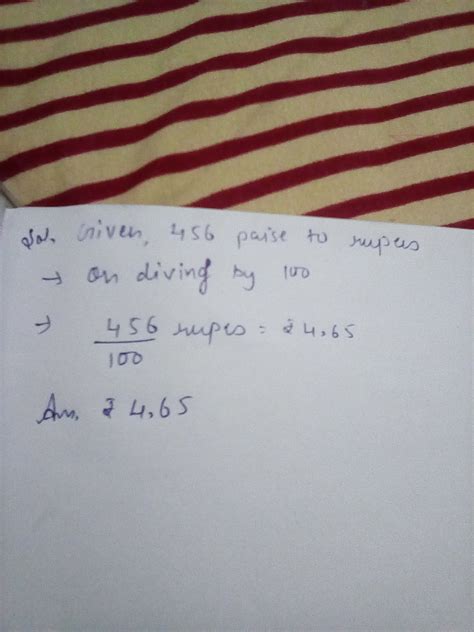 Sol. Given, 456 paise to rupees
→ On diving by 100
→ 456/100 rupes = ₹ 4.65
Ans. ₹ 4.65